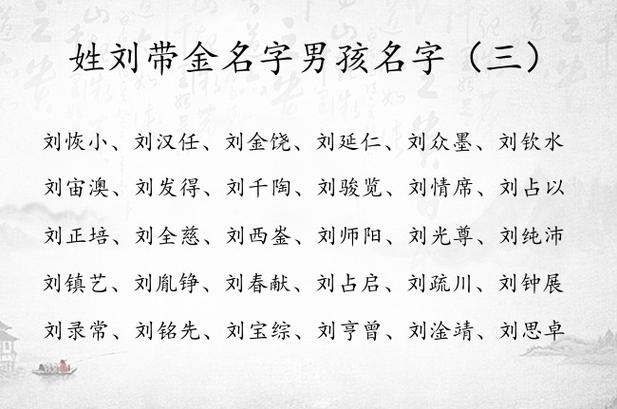 姓刘带金名字男孩名字（三）
刘恢小、刘汉任、刘金饶、刘延仁、刘众墨、刘钦水
刘宙澳、刘发得、刘千陶、刘骏览、刘情席、刘占以
刘正培、刘全慈、刘西崟、刘师阳、刘光尊、刘纯沛
刘镇艺、刘胤铮、刘春献、刘占启、刘疏川、刘钟展
刘录常、刘铭先、刘宝综、刘亨曾、刘淦靖、刘思卓